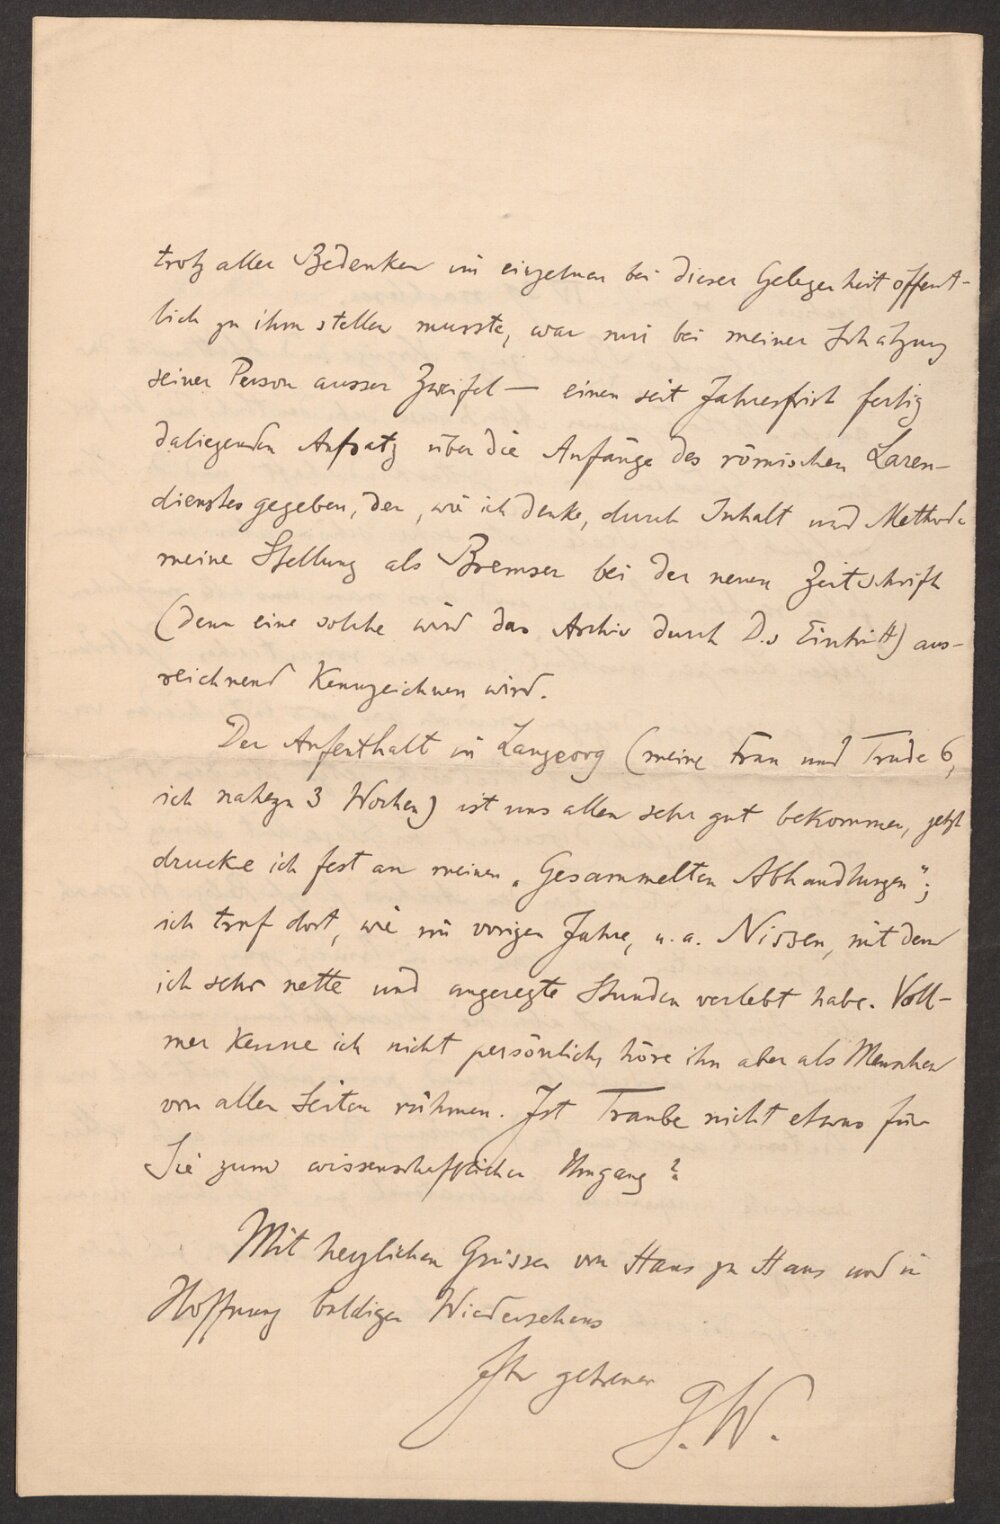 trotz aller Bedenken im einzelnen bei dieser Gelegenheit öffent-
lich zu ihm stellen musste, war mir bei meiner Schätzung
seiner Person ausser Zweifel — einen seit Jahresfrist fertig
daliegenden Aufsatz über die Anfänge des römischen Laren-
dienstes gegeben, der, wie ich denke, durch Inhalt und Methode
meine Stellung als Bremser bei der neuen Zeitschrift
(denn eine solche wird das Archiv durch D.s Eintritt) aus-
reichend kennzeichnen wird.
Der Aufenthalt in Langeoog (meine Frau und Trude 6,
ich nahezu 3 Wochen) ist uns allen sehr gut bekommen, jetzt
drucke ich fest an meinen „Gesammelten Abhandlungen";
ich traf dort, wie im vorigen Jahre, u. a. Nissen, mit dem
ich sehr nette und angeregte Stunden verlebt habe. Voll-
mer kenne ich nicht persönlich, höre ihn aber als Menschen
von allen Seiten rühmen. Ist Traube nicht etwas für
Sie zum wissenschaftlichen Umgang?
Mit herzlichen Grüssen von Haus zu Haus und in
Hoffnung baldigen Wiedersehens
Ihr getreuer
G. W.